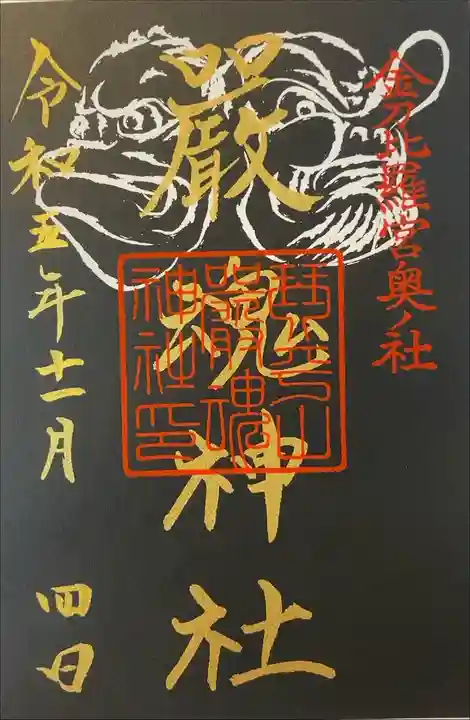 金刀比羅宮奥ノ社
嚴魂神社
琴平山
嚴魂
神社印
令和五年十一月四日